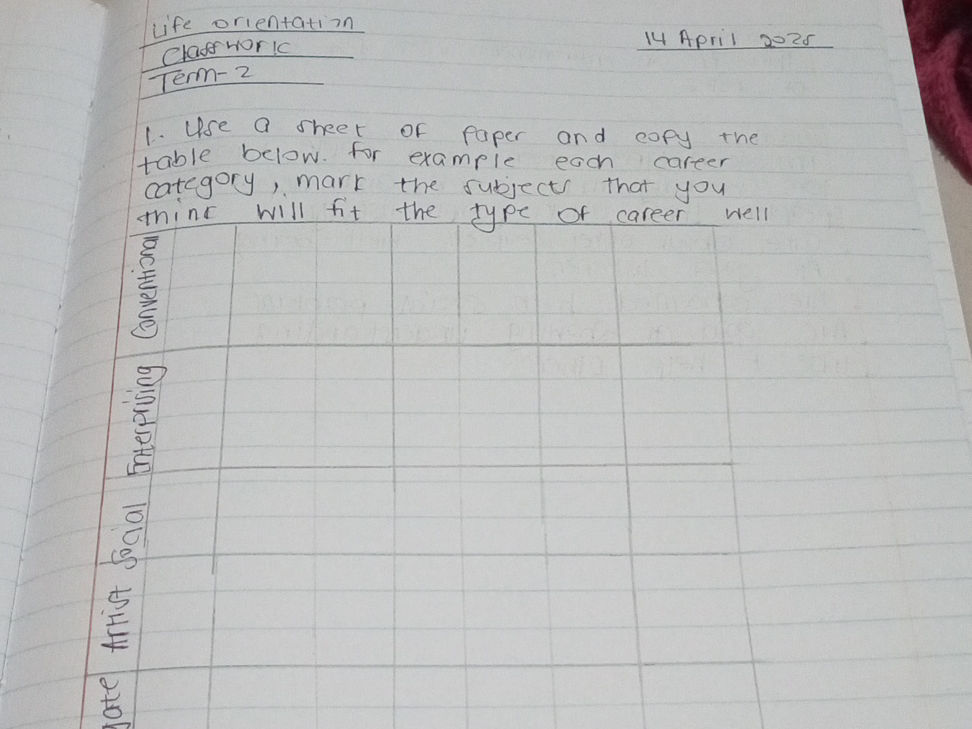 Life orientation
Classwork
Term-2
14 April 2025
1. Use a sheet of paper and copy the
table below. For example each career
category, mark the subjects that you
think will fit the type of career well
Conventional
Enterprising
Social
Artist
gate